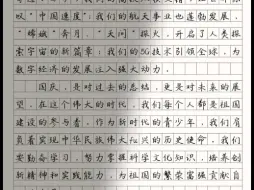 以"中国速度";我们的航天事业也蓬勃发展,
"嫦娥"奔月,"天问"探火,开启了人类探
索宇宙的新篇章;我们的5G技术引领全球,为
数字经济的发展注入强大动力。
国庆,是对过去的总结,更是对未来的展
望。在这个伟大的时代,我们每个人都是祖国
建设的参与者。作为新时代的青少年,我们肩
负着实现中华民族伟大复兴的历史使命。我们
要勤奋学习,努力掌握科学文化知识,培养创
新精神和实践能力,为祖国的繁荣富强贡献自